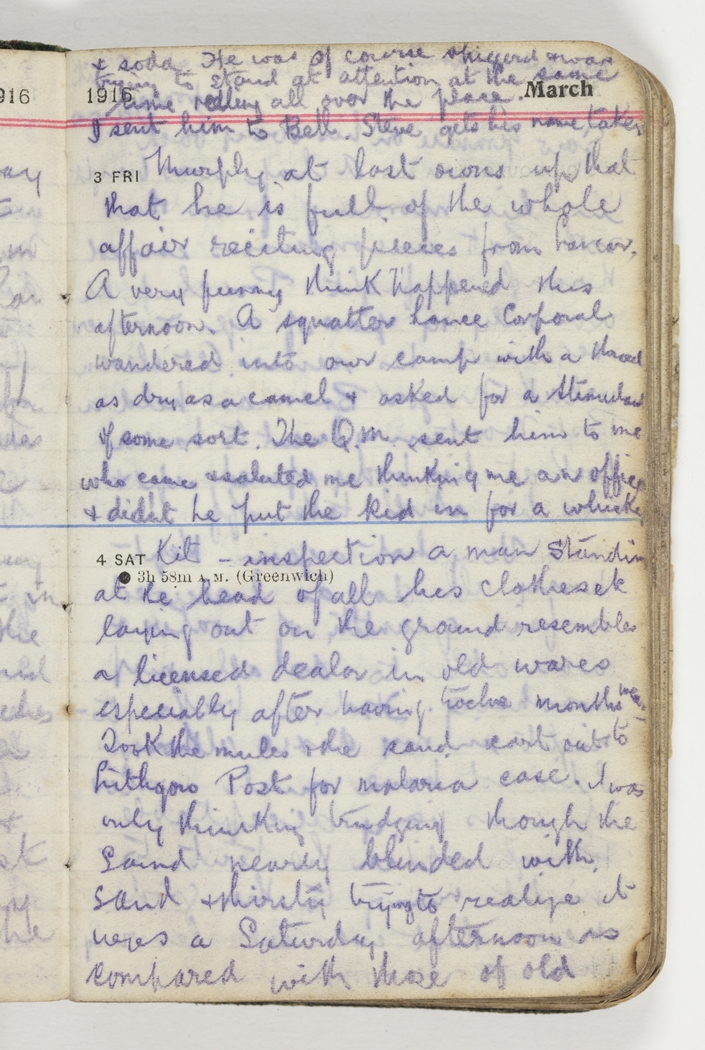 & soda He was of course shiggered & was
trying to stand at attention at the same
916
1916 time rolling all over the place. March
I sent him to Bell. Steve gets his name taken
3 FRI Murphy at last owns up that
that he is full of the whole
affair reciting pieces from
A very funny think happened this
afternoon. A squatter Lance Corporal
wandered into our camp with a thraod
as dry as a camel & asked for a
of some sort. The Q.M. sent him to me
who came & saluted me thinking me an office
& didn't he put the kid in for a whiskey
4 SAT Kit - inspection a man standin
3h 58m A.M. (Greenwich)
at the head of all his clothes etc
laying out on the ground resembles
a licensed dealer in old wares
especially after having twelve months wear.
Took the mules & the sand cart out to
Lithgows Post for malaria case. I was
only thinking trudging though the
Sand nearly blinded with
sand & thirsty trying to realize it
was a Saturday afternoon as
compared with those of old